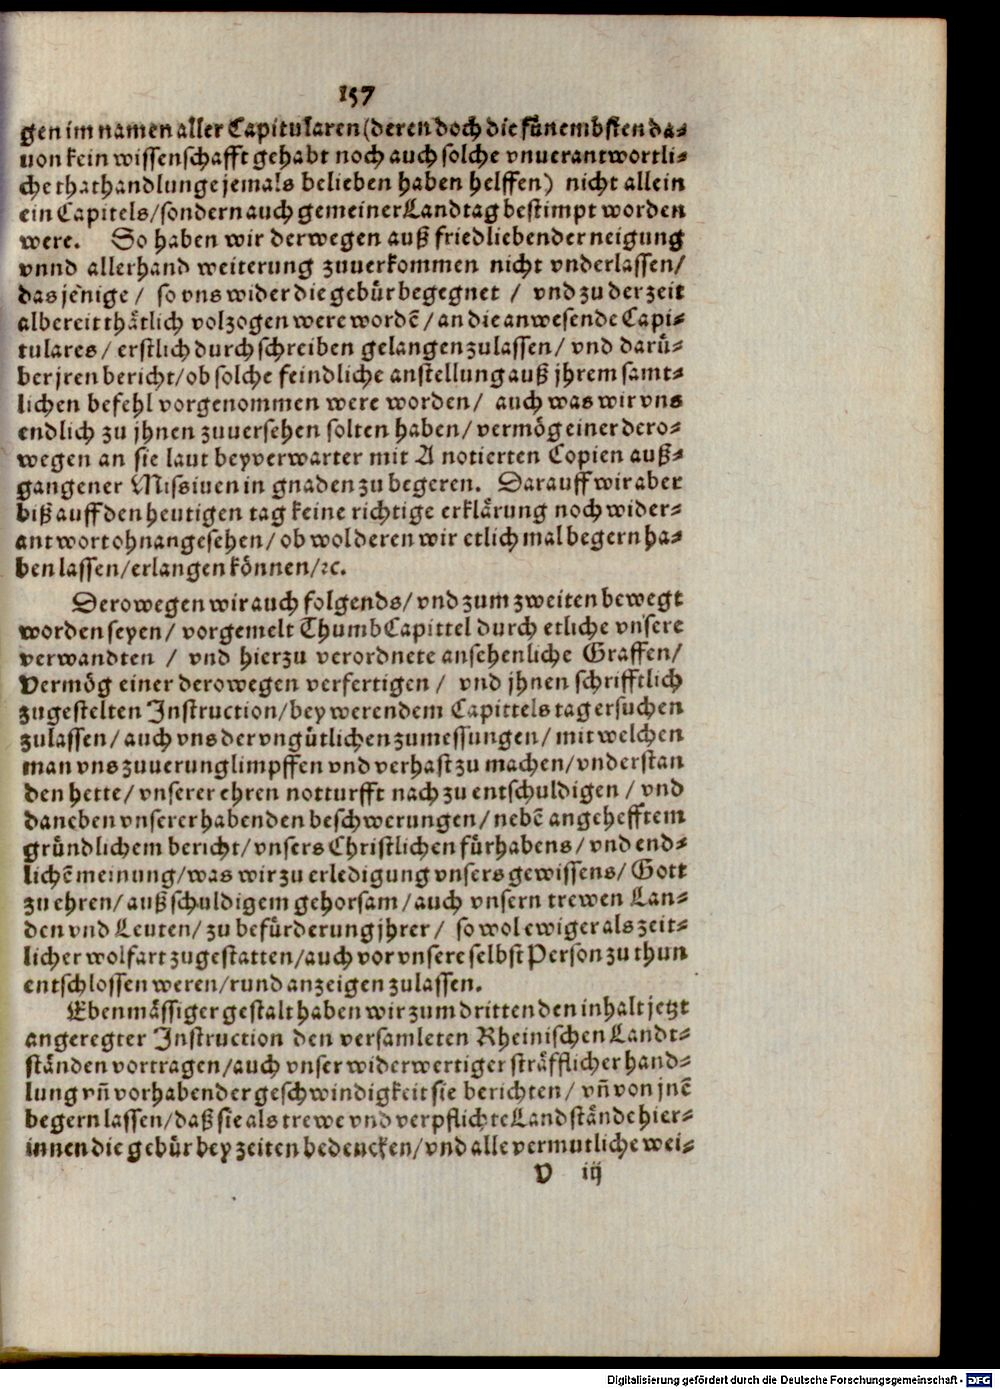 157
gen im namen aller Capitularen (deren doch die fürnembsten da⸗
uon kein wissenschafft gehabt noch auch solche vnuerantwortli⸗
che thathandlunge jemals belieben haben helffen) nicht allein
ein Capitels/ sondern auch gemeiner Landtag bestimpt worden
were. So haben wir derwegen auß friedliebender neigung
vnnd allerhand weiterung zuuerkommen nicht vnderlassen/
dasjenige / so vns wider die gebür begegnet / vnd zu der zeit
albereit thätlich volzogen were wordē / an die anwesende Capi⸗
tulares / erstlich durch schreiben gelangen zulassen / vnd darü⸗
ber jren bericht/ ob solche feindliche anstellung auß jhrem samt⸗
lichen befehl vorgenommen were worden/ auch was wir vns
endlich zu jhnen zuuersehen solten haben/ vermög einer dero⸗
wegen an sie laut beyverwarter mit A notierten Copien auß⸗
gangener Missiuen in gnaden zu begeren. Darauff wir aber
biß auff den heutigen tag keine richtige erklärung noch wider⸗
antwort ohnangesehen/ ob wol deren wir etlich mal begern ha⸗
ben lassen/ erlangen können/ ꝛc.
Derowegen wir auch folgends/ vnd zum zweiten bewegt
worden seyen/ vorgemelt ThumbCapittel durch etliche vnsere
verwandten / vnd hierzu verordnete ansehenliche Graffen/
Vermög einer derowegen verfertigen / vnd jhnen schrifftlich
zugestelten Instruction/ bey werendem Capittels tag ersuchen
zulassen/ auch vns der vngütlichen zumessungen/ mit welchen
man vns zuuerunglimpffen vnd verhast zu machen/ vnderstan
den hette/ vnserer ehren notturfft nach zu entschuldigen / vnd
daneben vnserer habenden beschwerungen/ nebē angehefftem
gründlichem bericht/ vnsers Christlichen fürhabens/ vnd end⸗
lichē meinung/ was wir zu erledigung vnsers gewissens/ Gott
zu ehren/ auß schuldigem gehorsam/ auch vnsern trewen Lan⸗
den vnd Leuten/ zu befürderung jhrer / so wol ewiger als zeit⸗
licher wolfart zugestatten/ auch vor vnsere selbst Person zu thun
entschlossen weren/ rund anzeigen zulassen.
Ebenmässiger gestalt haben wir zum dritten den inhalt jetzt
angeregter Instruction den versamleten Rheinischen Landt⸗
ständen vortragen/ auch vnser widerwertiger sträfflicher hand⸗
lung vñ vorhabender geschwindigkeit sie berichten/ vñ von jnē
begern lassen/ daß sie als trewe vnd verpflichte Landstände hier⸗
innen die gebür bey zeiten bedencken/ vnd alle vermutliche wei⸗
V iij
Digitalisierung gefördert durch die Deutsche Forschungsgemeinschaft - DFG